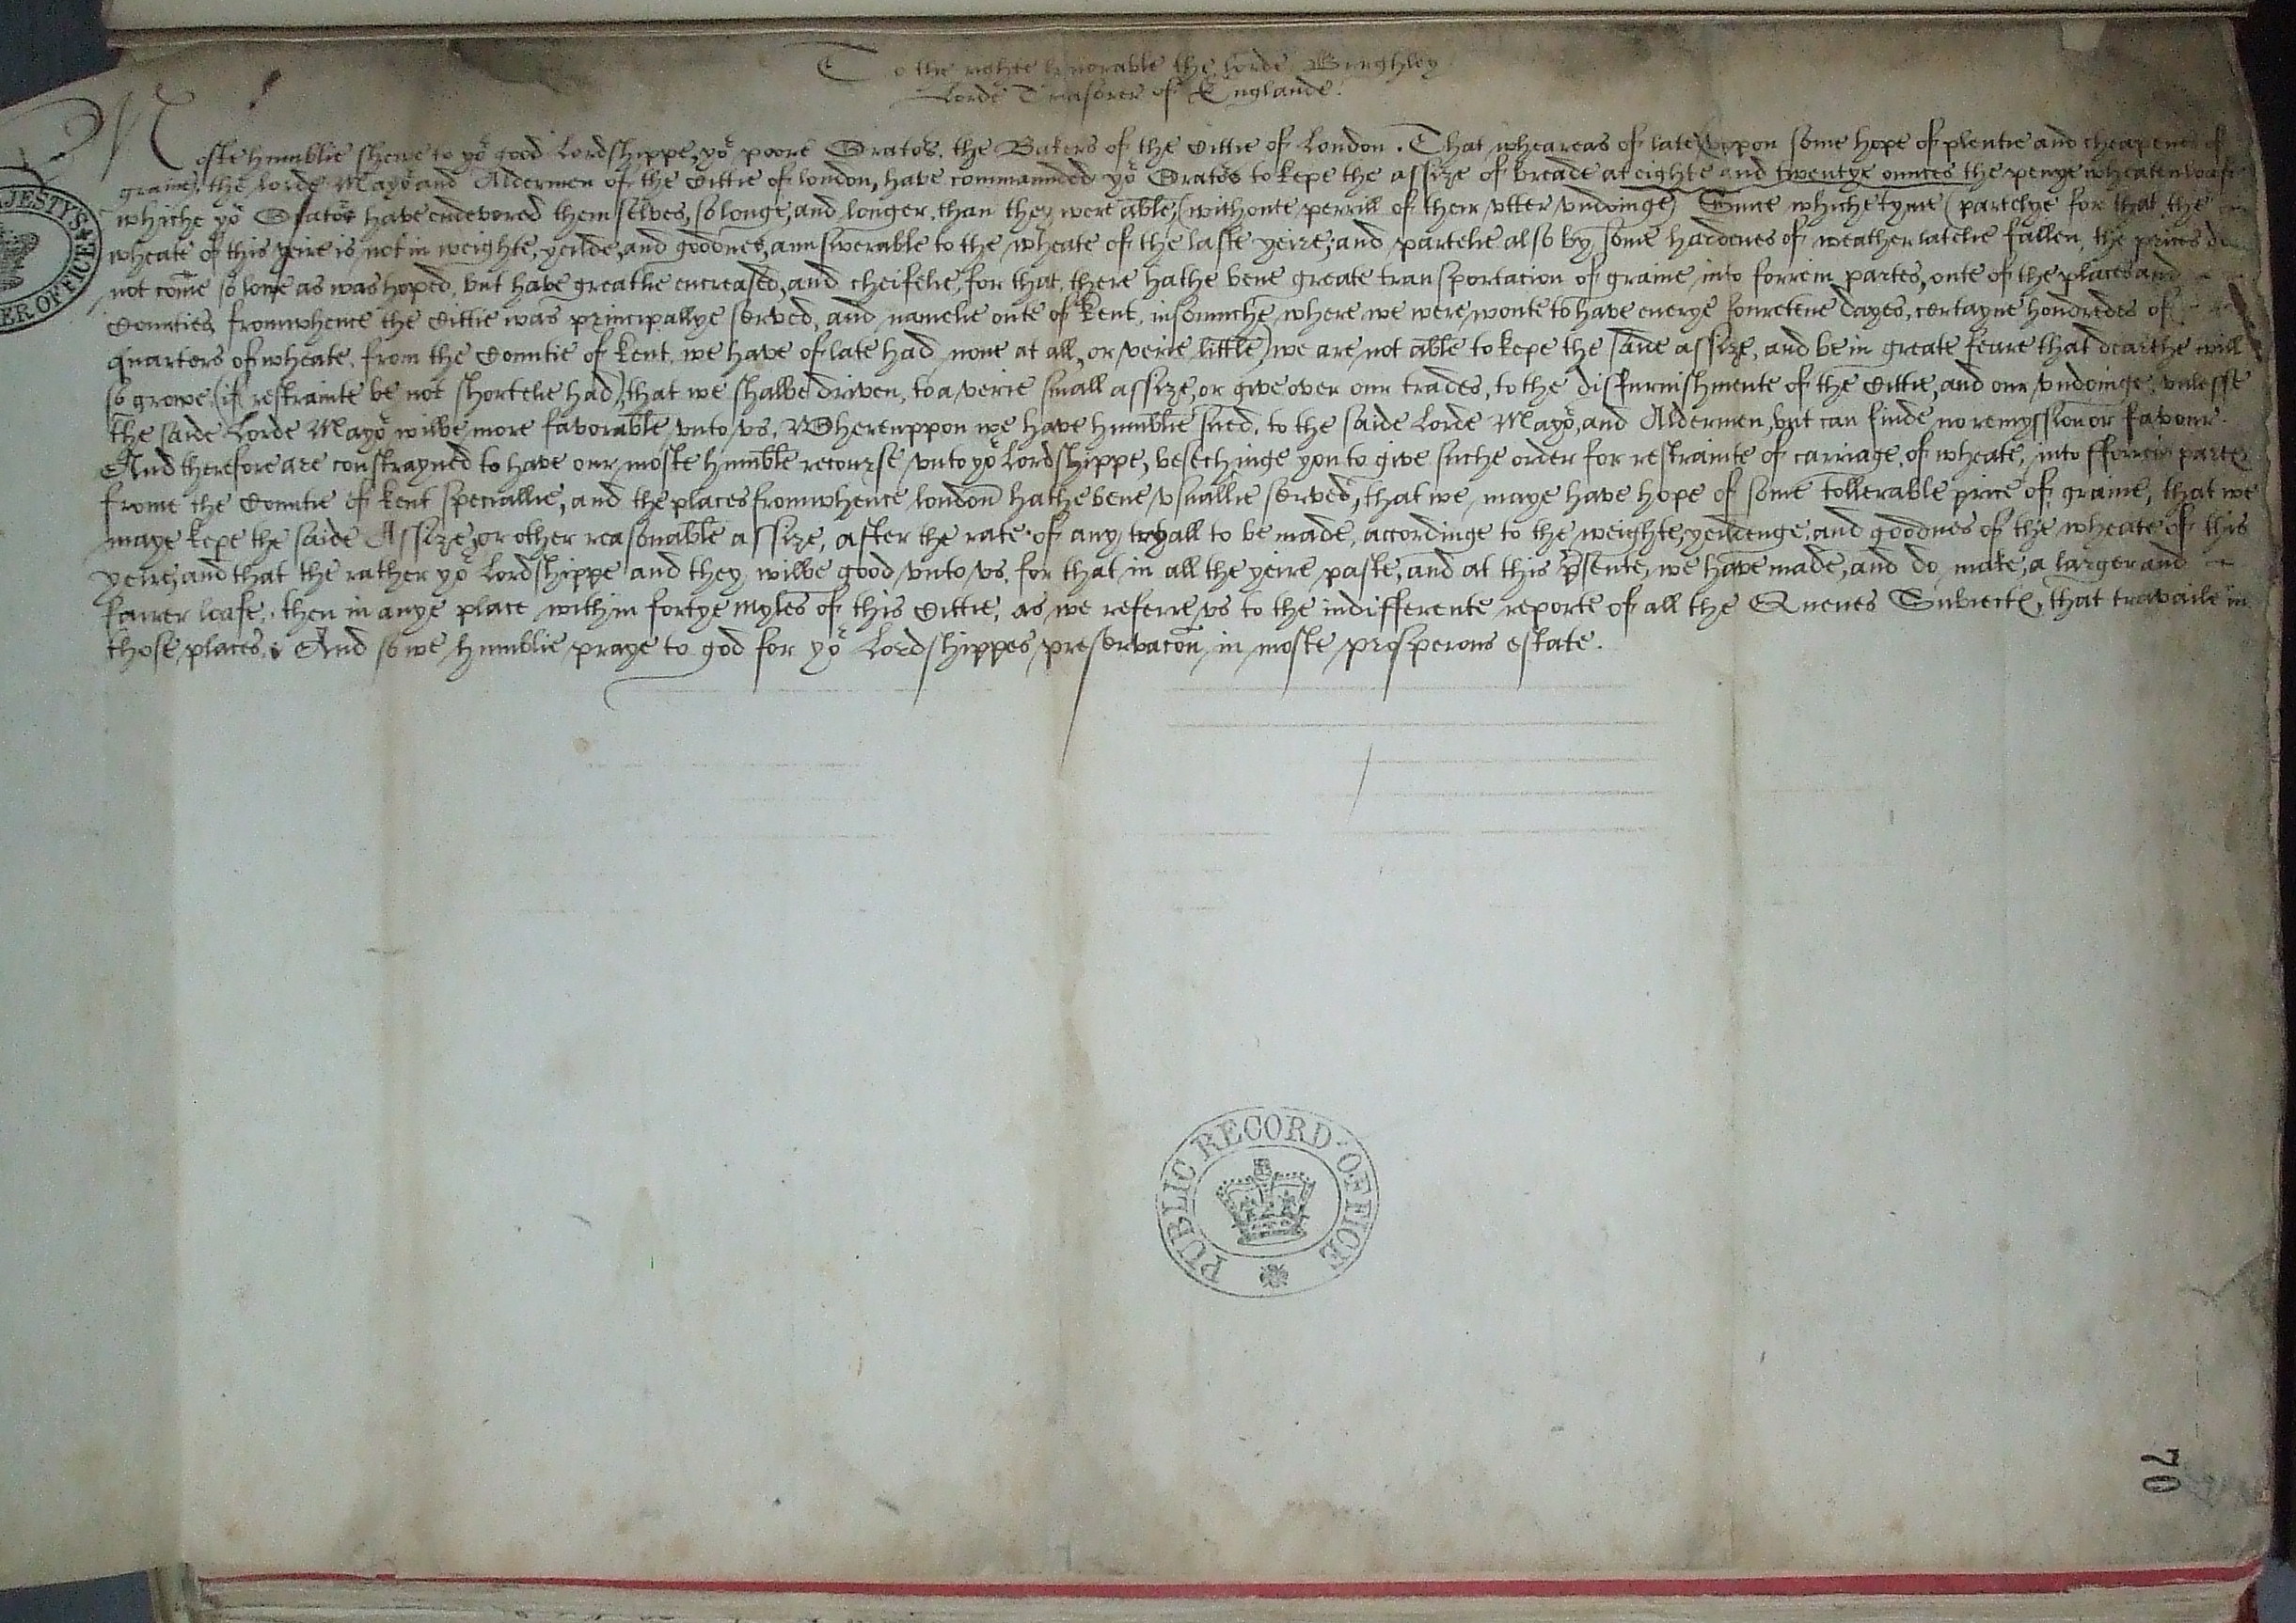 To the righte honorable the Lorde Burghley
Lorde Treasorer of Englande.
Moste humblie shewe to yor good Lordshippe, yor poore Orators, the Bakers of the Cittie of London. That wheareas of late (vppon some hope of plentie and cheapenes of
graine) the Lorde Mayor and Aldermen of the Cittie of london, have commaunded yor Orators to kepe the assize of breade at eighte and twentye ounces the penye wheaten loafe
whiche yor Orators have endevored them selves, so longe, and longer, than they were able, (withoute perrill of their vtter vndoinge) Since whiche tyme (partelye for that the
wheate of this yeire is not in weighte, yeilde, and goodnes, aunswerable to the wheate of the laste yeire, and partelie also by some hardenes of weather latelie fallen, the prices do
not come so lowe as was hoped, but have greatlie encreased, and cheifelie, for that, there hathe bene greate transportacion of graine into forrein partes, oute of the places and
Counties, fromwhence the Cittie was principallye served, and namelie oute of Kent, insomuche, where we were wonte to have euerye fouretene dayes, certayne hondredes of
quarters of wheate, from the Countie of Kent, we have of late had none at all, or verie little) we are not able to kepe the same assize, and be in greate feare that dearthe will
so growe, (if restrainte be not shortelie had), that we shalbe driven, to a verie small assize, or give over our trades, to the disfurnishmente of the Cittie, and our vndoinge, vnlesse
the saide Lorde Mayor wilbe more favorable vnto vs. Wherevppon we have humblie sued, to the saide Lorde Mayor, and Aldermen, but can finde no remyssion or favour.
And therefore are constrayned to have our moste humble recourse vnto yor Lordshippe, besechinge you to give suche order for restrainte of carriage, of wheate, into fforrein partes
frome the Countie of Kent speciallie, and the places fromwhence london hathe bene vsuallie served, that we maye have hope of some tollerable price of graine, that we
maye kepe the saide Assize, or other reasonable assize, after the rate of any tryall to be made, accordinge to the weighte, yeildenge, and goodnes of the wheate of this
yeire, and that the rather yor Lordshippe and they wilbe good vnto vs, for that in all the yeire paste, and at this psente, we have made, and do make, a larger and
fairer loafe, then in anye place within fortye myles of this Cittie, as we referre vs to the indifferente reporte of all the Quenes Subiectes, that travaile in
those places. And so we humblie praye to god for yor Lordshippes preservacon in moste prosperous estate.
PUBLIC RECORD OFFICE
70